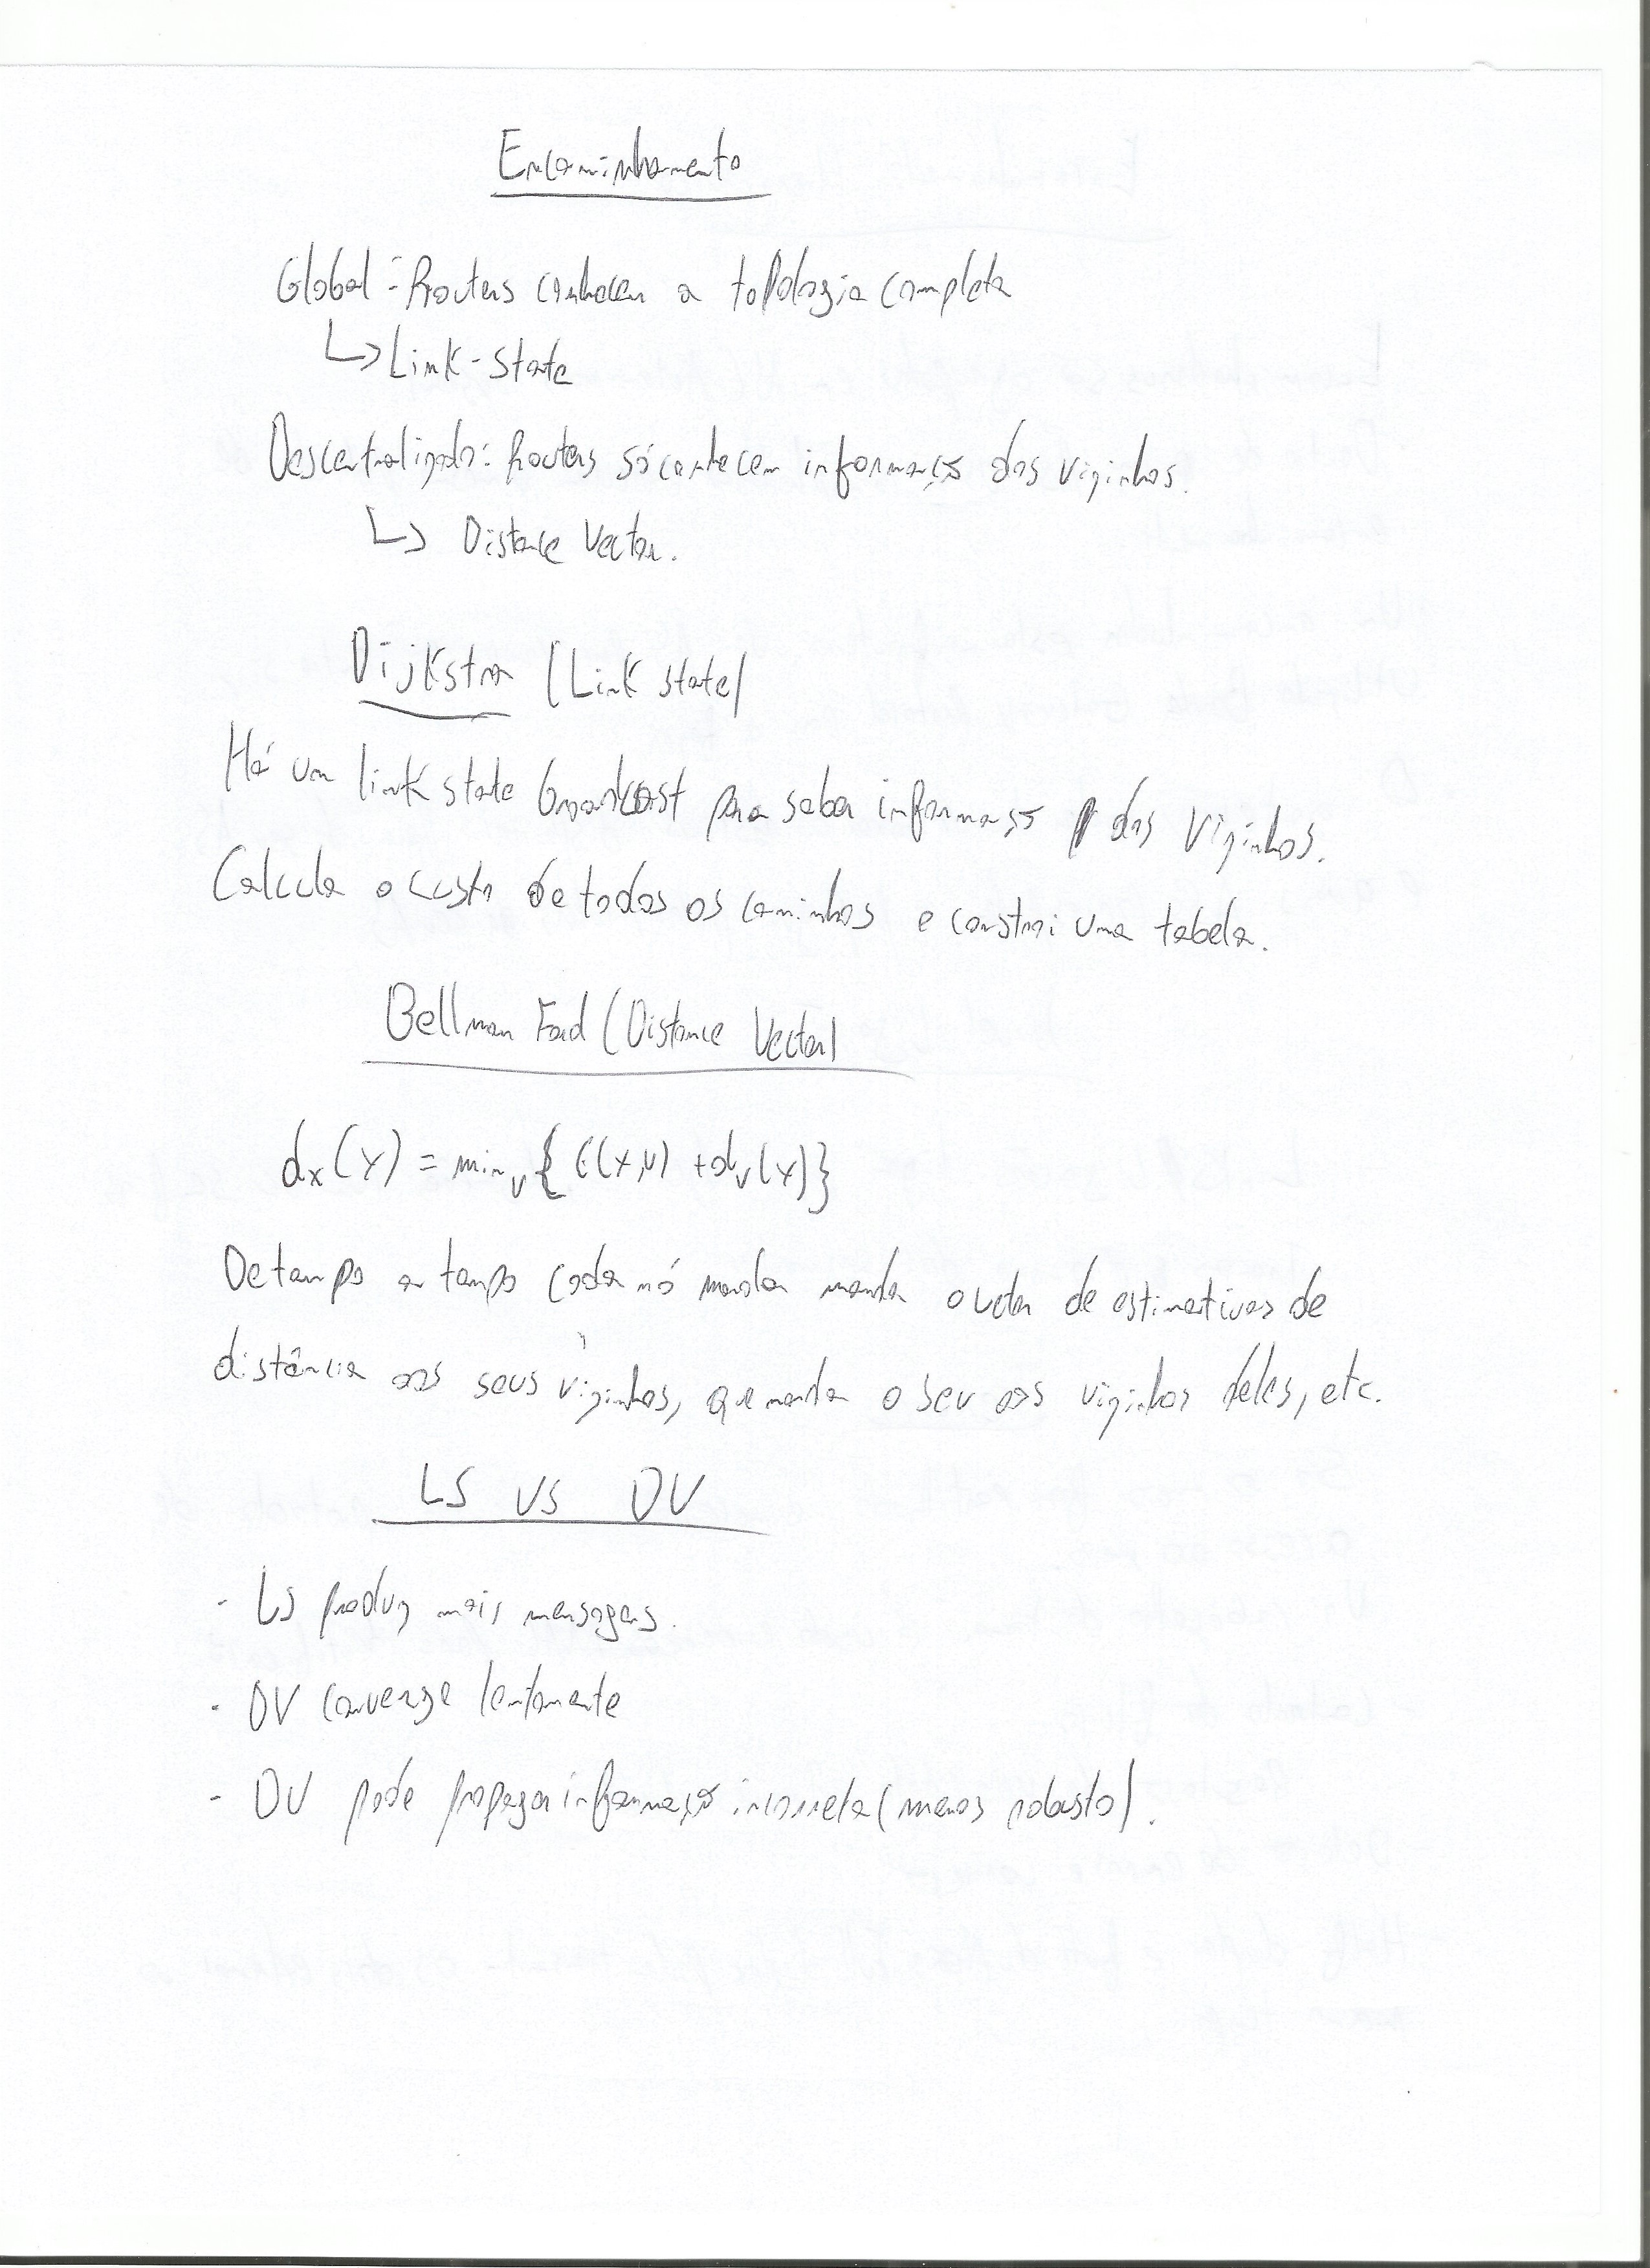 Encaminhamento
Global: Routers conhecem a topologia completa
↳ Link-State
Descentralizado: Routers só conhecem informação dos vizinhos.
↳ Distance Vector.
Dijkstra (Link state)
Há um link state broadcast para saber informação dos vizinhos.
Calcula o custo de todos os caminhos e constroi uma tabela.
Bellman Ford (Distance Vector)
dx(y) = minv{c(x,v) + dv(y)}
De tempo a tempo cada nó manda manda o vetor de estimativas de
distância aos seus vizinhos, que manda o seu aos vizinhos deles, etc.
LS vs DV
- LS produz mais mensagens.
- DV converge lentamente
- DV pode propagar informação incorreta (menos robusto).